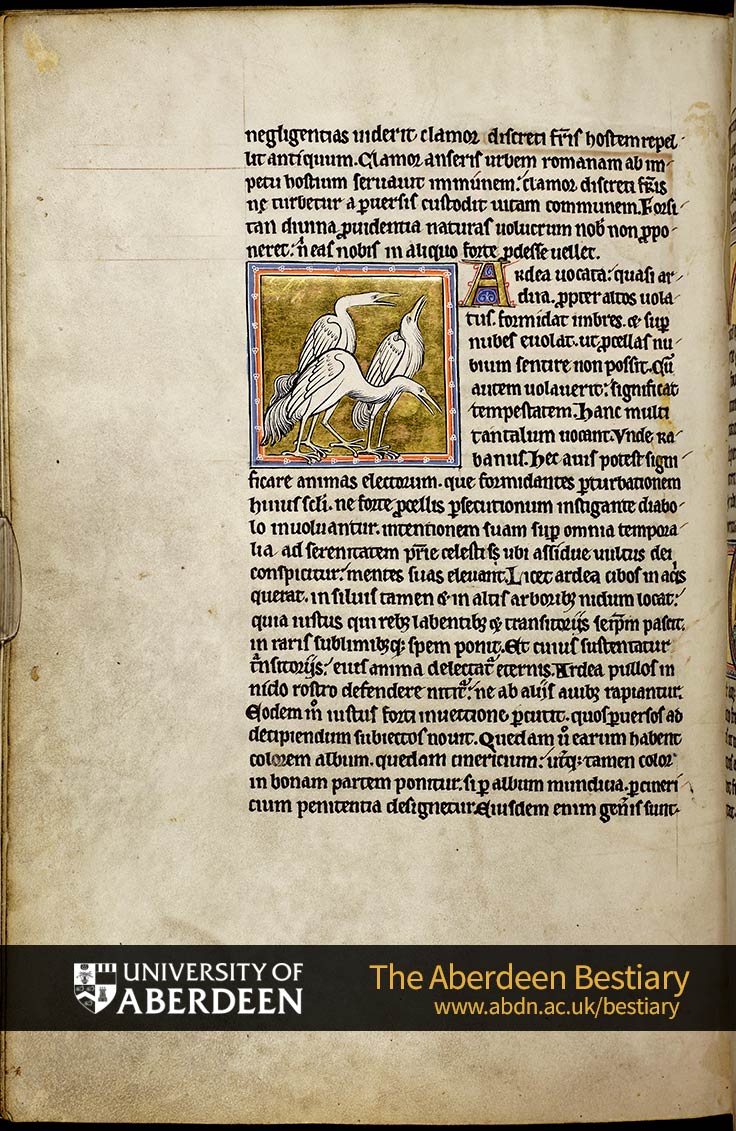 negligentias uiderit clamor discreti fr̄is hostem repel-
lit antiquum. Clamor anseris urbem romanam ab im-
petu hostium seruauit immunem: clamor discreti fr̄is
ne turbetur a ꝑuersis custodit uitam communem. Forsi-
tan diuina ꝓuidentia naturas uolucrum nob̄ non ꝓpo-
neret: n̄ eas nobis in aliquo forte ꝓdesse uellet.
Ardea uocata: quasi ar-
dua. ꝓpter altos uola-
tus. formidat imbres. & suꝑ
nubes euolat. ut ꝓcellas nu-
bium sentire non possit. Cū
autem uolauerit: significat
tempestatem. Hanc multi
tantalum uocant. Vnde ra-
banus. Hec auis potest signi-
ficare animas electorum. que formidantes ꝑturbationem
huius scl̄i. ne forte ꝓcellis ꝑsecutionum instigante diabo-
lo inuoluantur. intentionem suam suꝑ omnia tempora-
lia ad serenitatem pr̄ie celestis ubi assidue uultus dei
conspicitur: mentes suas eleuant. Licet ardea cibos in aq̄is
querat. in siluis tamen & in altis arboribꝫ nidum locat:
quia iustus qui rebꝫ labentibꝫ & transitoriis seip̄m pascit.
in raris sublimibꝫqꝫ spem ponit. Et cuius sustentatur
t̄nsitoriis: eius anima delectat̄ eternis. Ardea pullos in
nido rostro defendere nitit̄: ne ab aliis auibꝫ rapiantur.
Eodem mͦ iustus forti inuectione ꝑcutit. quos ꝑuersos ad
decipiendum subiectos nouit. Quedam ū earum habent
colorem album. quedam cinericium: ut̄qꝫ tamen color
in bonam partem ponitur. si ꝑ album mundicia. ꝑ cineri-
cium penitentia designetur. Eiusdem enim gen̄is sunt
UNIVERSITY OF
ABERDEEN
The Aberdeen Bestiary
www.abdn.ac.uk/bestiary